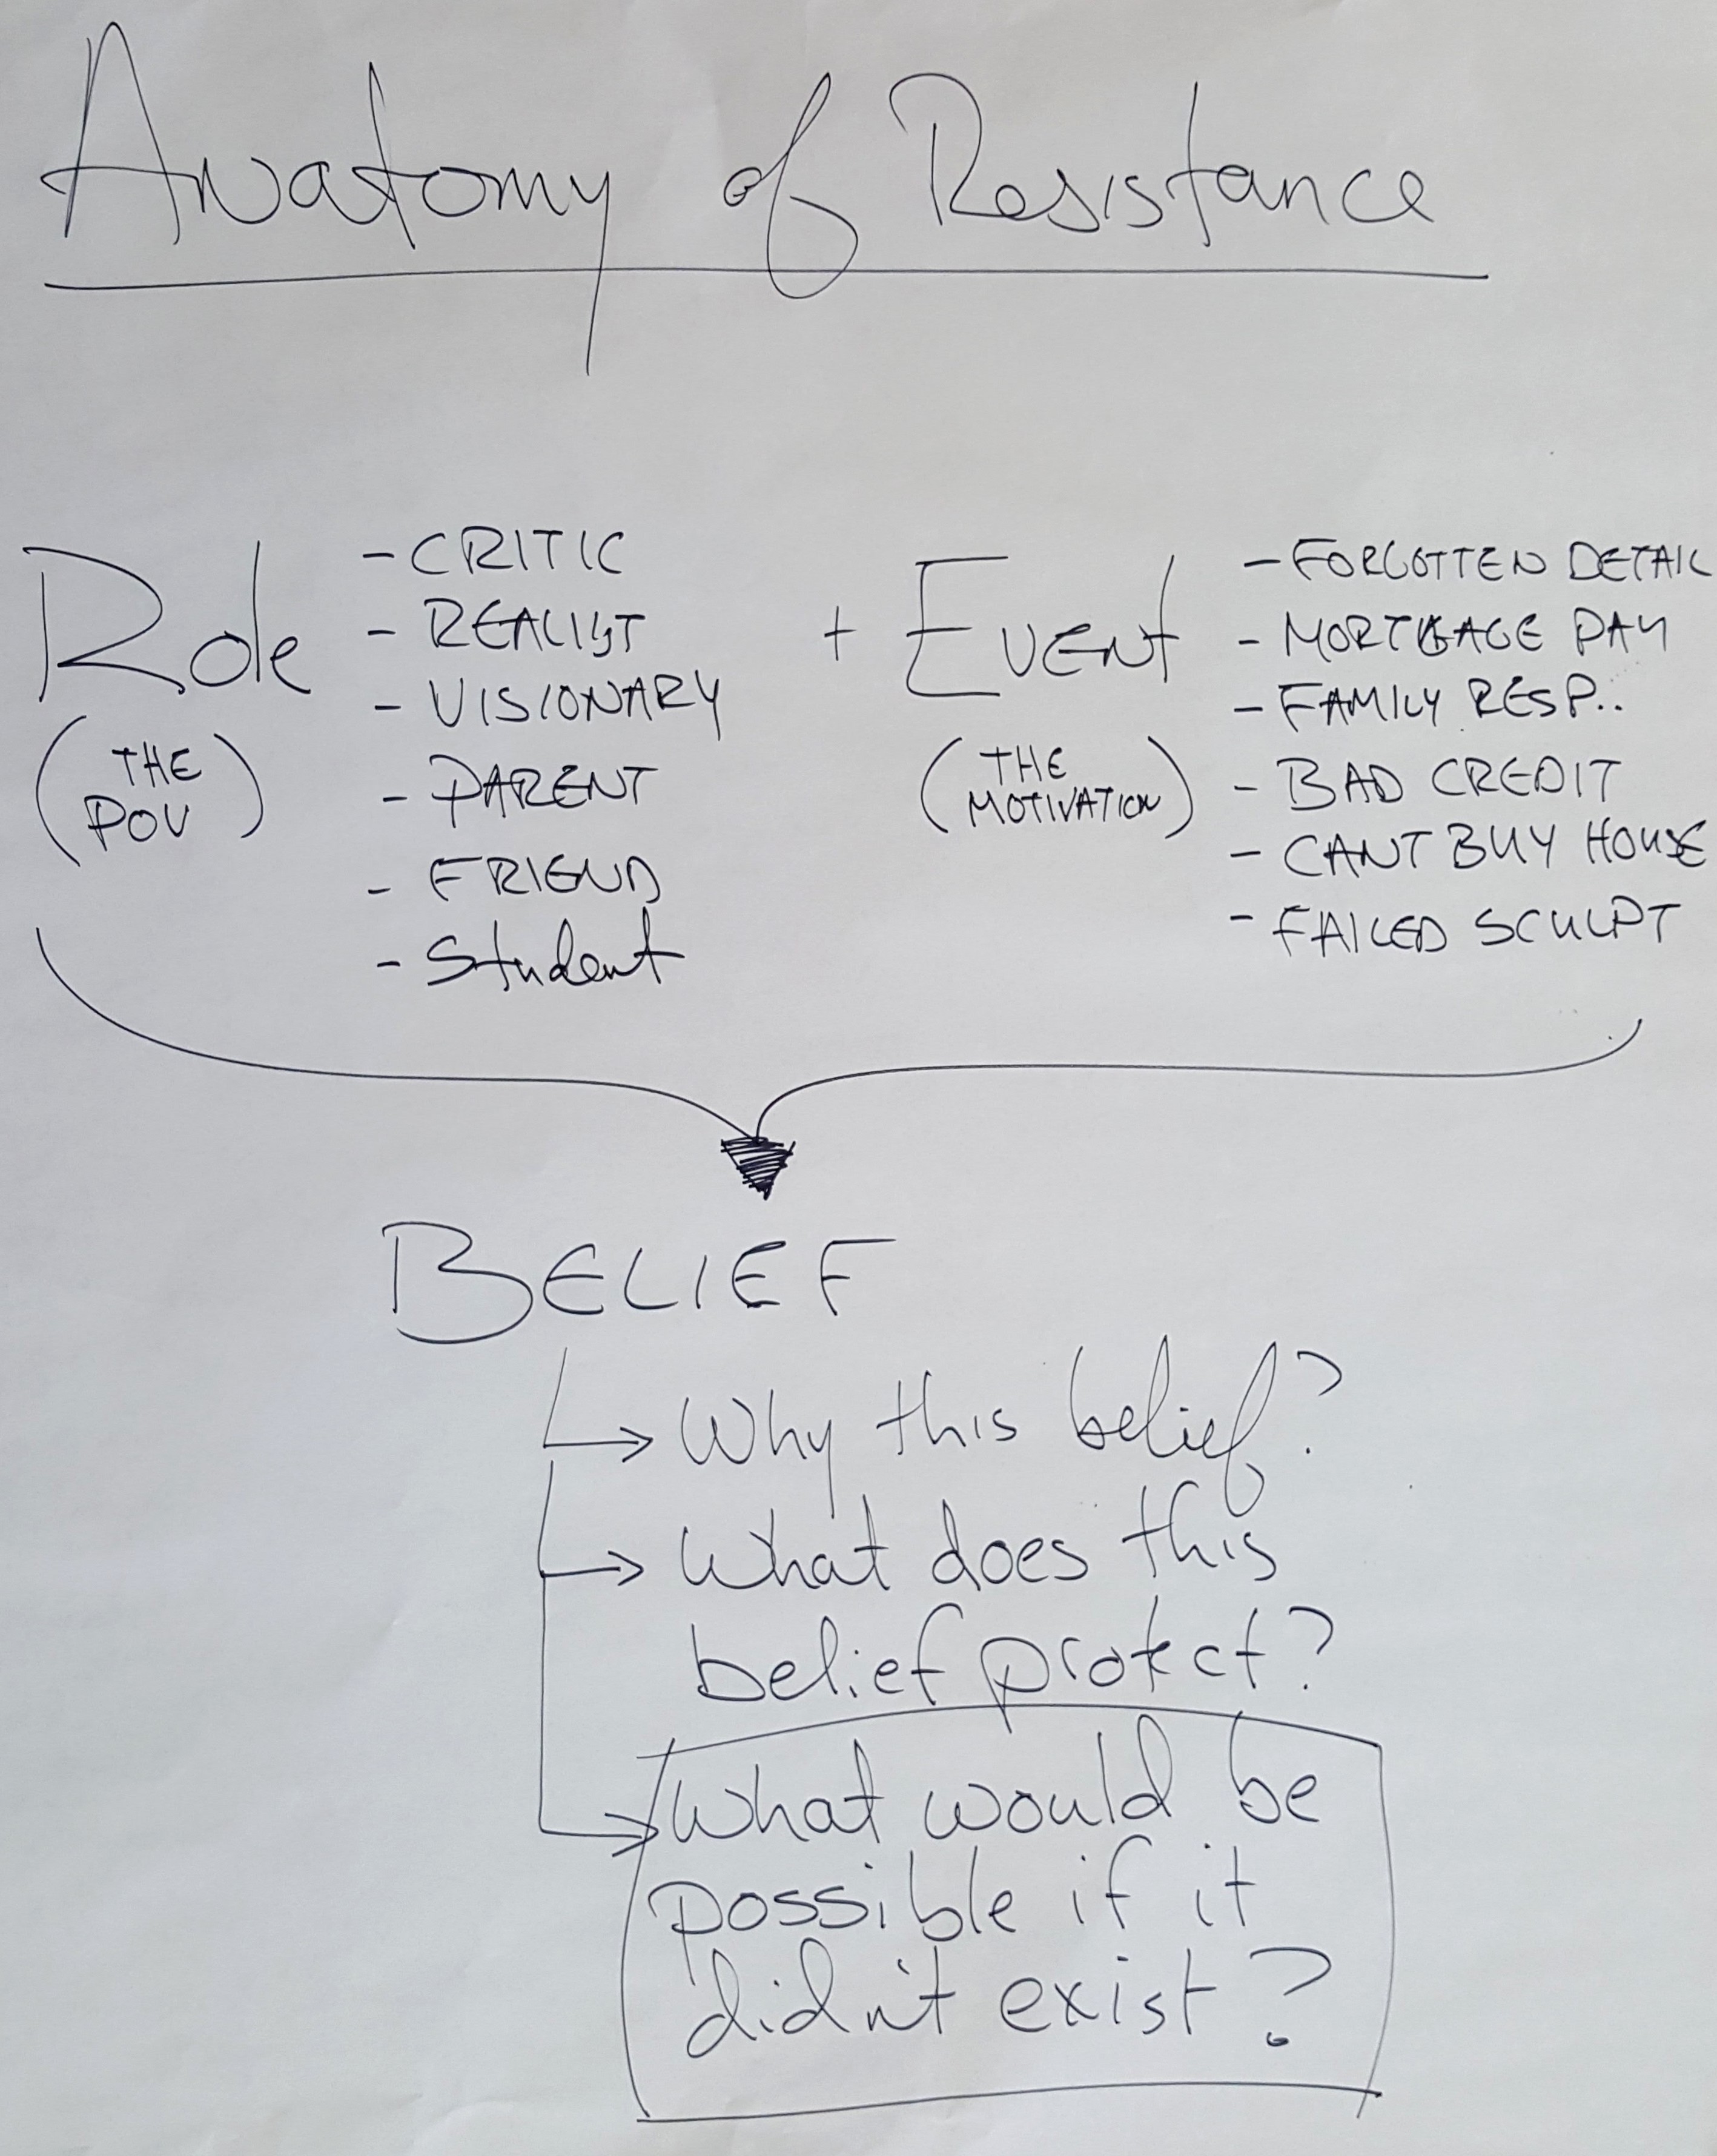 Anatomy of Resistance
Role
(THE
POV)
- CRITIC
- REALIST
- VISIONARY
- PARENT
- FRIEND
- Student
+ EVENT
(THE
MOTIVATION)
- FORGOTTEN DETAIL
- MORTGAGE PAY
- FAMILY RESP..
- BAD CREDIT
- CANT BUY HOUSE
- FAILED SCULPT
BELIEF
→ Why this belief?
→ What does this
belief protect?
→ What would be
possible if it
didn't exist?